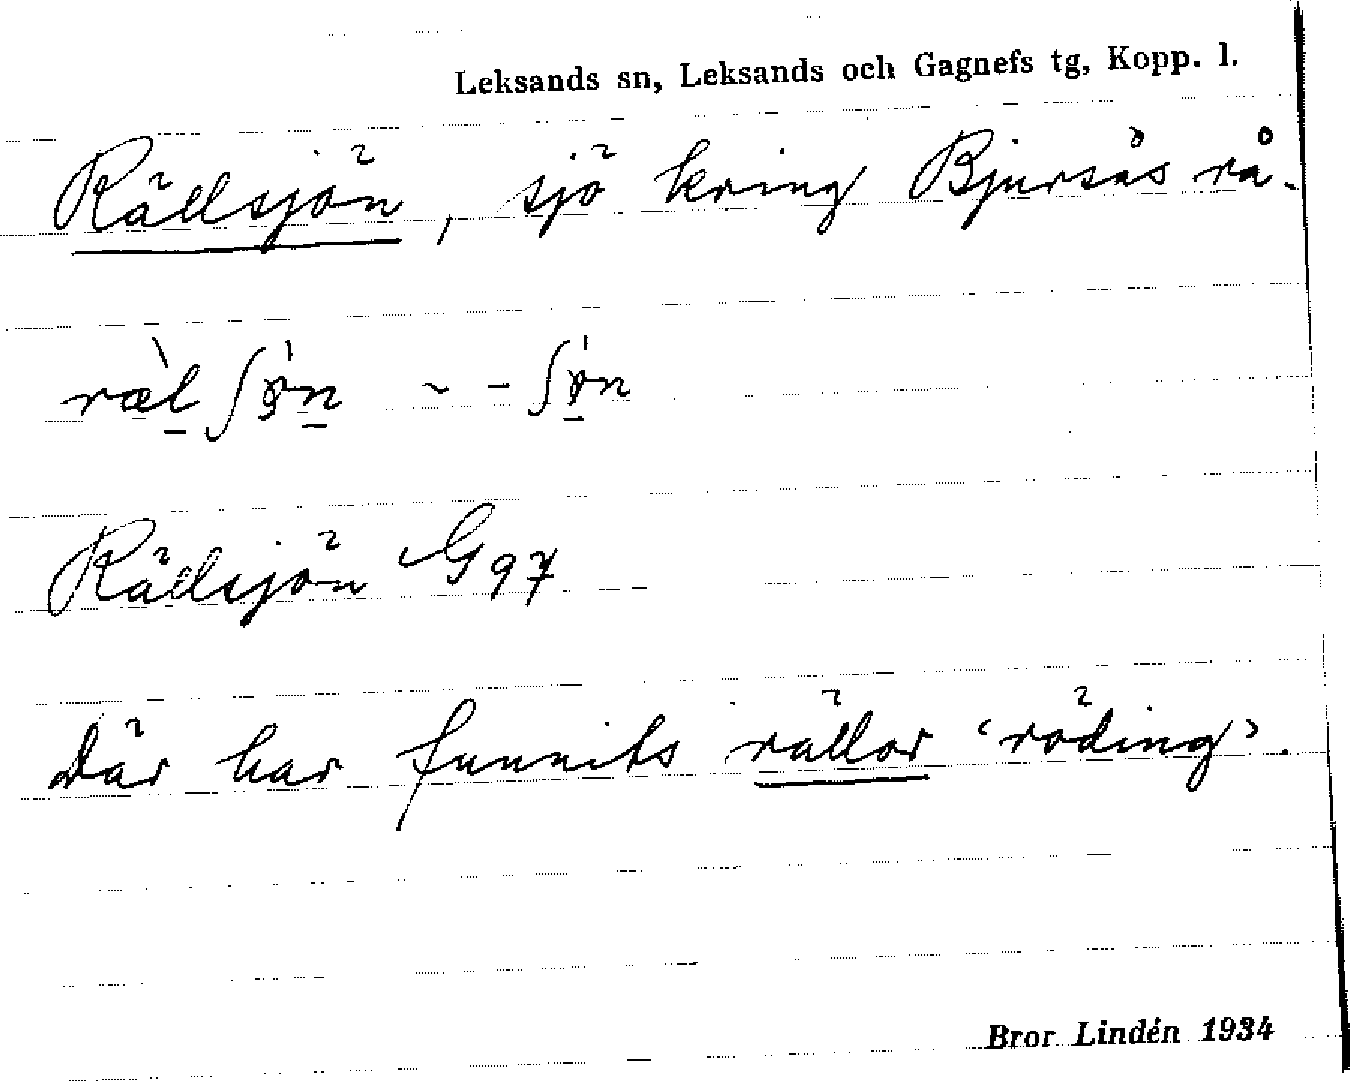 Leksands sn, Leksands och Gagnefs tg, Kopp. l.
Rällsjön, sjö kring Bjursås rå.
Rällsjön G97
där har funnits rällor ‘röding’.
Bror Lindén 1934